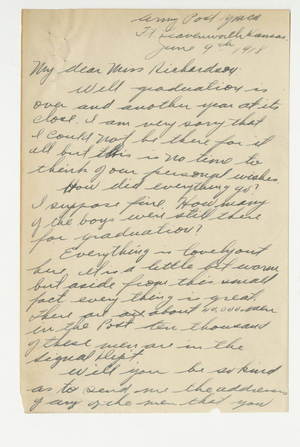 Army Post YMCA
Ft Leavenworth Kansas
June 9th, 1918
My dear Miss Richardson:
Well graduation is
over and another year at its
close. I am very sorry that
I could not be there for it
all but this is no time to
think of our personal wishes.
How did everything go?
I suppose fine. How many
of the boys were still there
for graduation?
Everything is lovely out
here, it is a little bit warm
but aside from this small
fact everything is great.
There are about 60,000 men
in the Post ten thousand
of these men are in the
Signal Dept.
Will you be so kind
as to send me the addresses
of any of the men that you